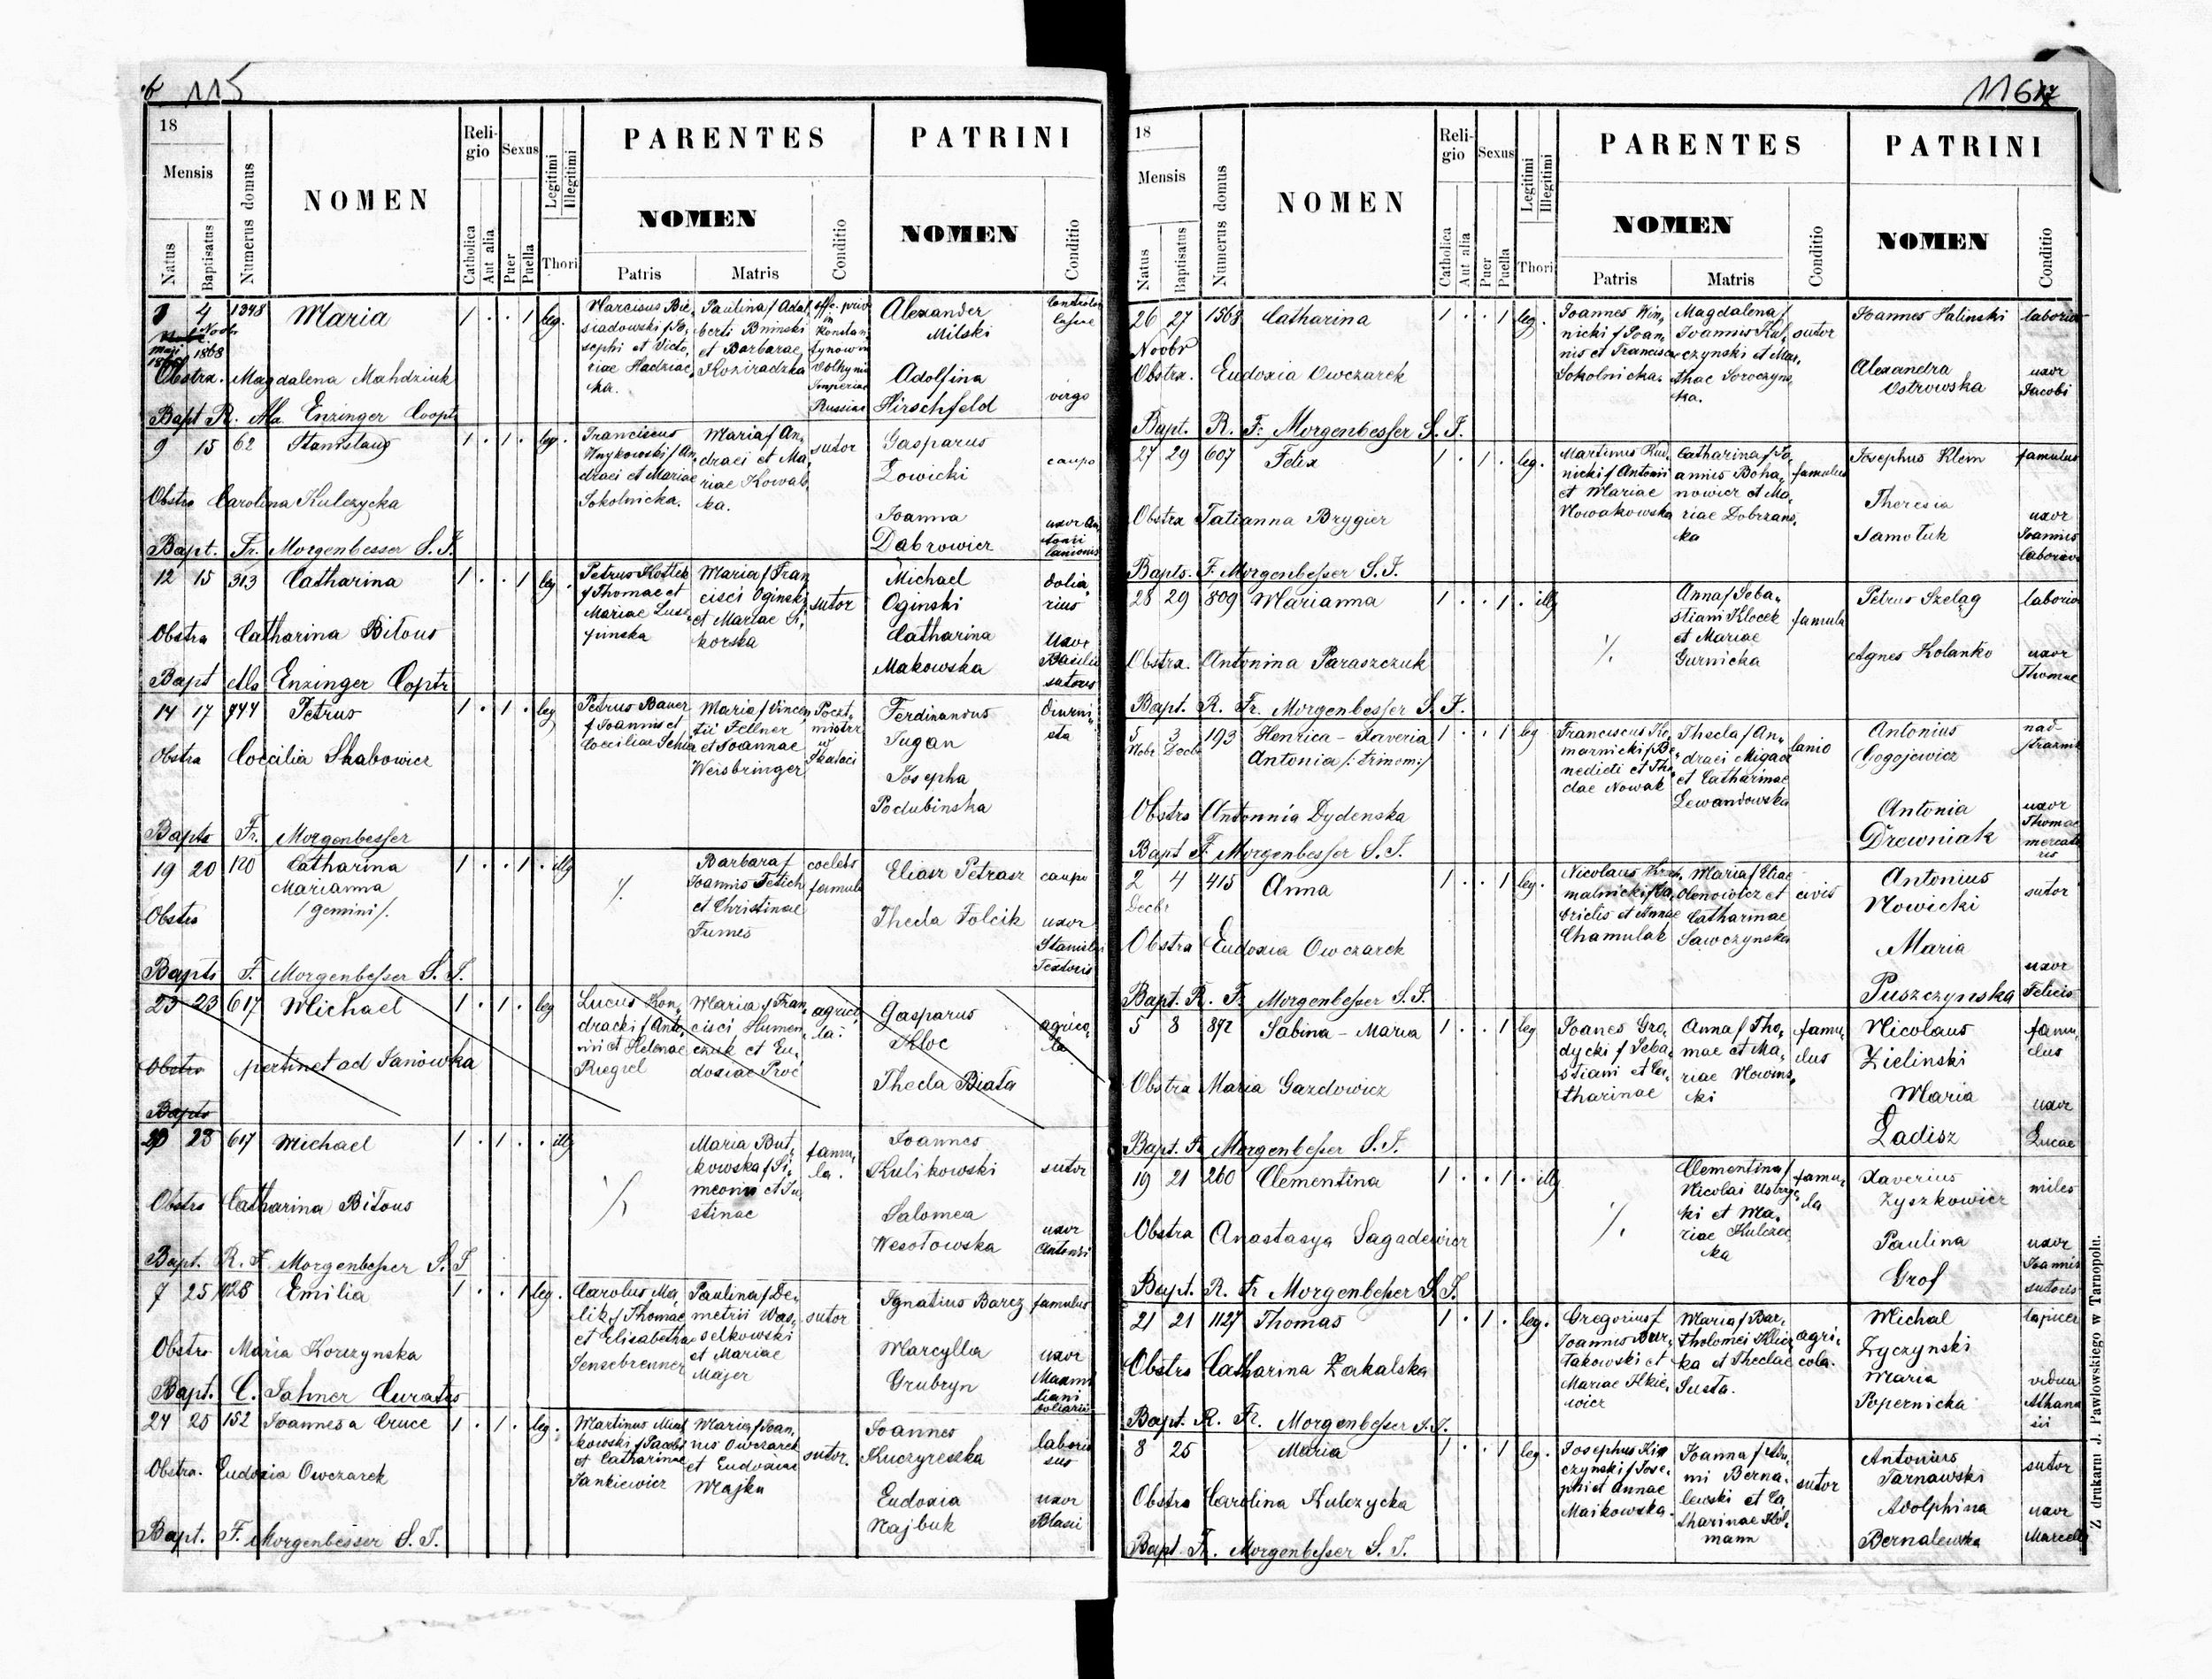 115
18
Mensis
Natus
Baptisatus
Numerus domus
NOMEN
Religio
Catholica
Aut alia
Sexus
Puer
Puella
Legitimi
Illegitimi
Thori
PARENTES
NOMEN
Patris
Matris
Conditio
PATRINI
NOMEN
Conditio
4 1398 Maria 1 . . 1 leg.
1868
Obstrx. Magdalena Mahdziuk
Bapt R. Enzinger Coopt
Narcisus Bie,
siadowski f Jo,
sephi et Victo,
riae Hadziac,
ka.
Paulina f Adal
berti Bninski
et Barbarae
Koziradzka
in
Konstan
tynow in
Volhynia
Imperiae
Russiae
Alexander
Milski
Adolfina
Hirschfeld
virgo
9 15 62 Stanislaus 1 . 1 . leg.
Obstra Carolina Kulczycka
Bapt. Fr. Morgenbesser S. J.
Franciscus
draei et Mariae
Sokolnicka.
Maria f An,
draei et Ma,
riae Kowals
ka.
sutor
Gasparus
Łowicki
Joanna
Dąbrowicz
caupo
uxor
lanionis
12 15 313 Catharina 1 . . 1 leg.
Obstra Catharina Bitous
Bapt Enzinger Coptr
Petrus
f Thomae et
Mariae
Maria f Fran
cisci Oginski
et Mariae Si,
korska
sutor
Michael
Oginski
Catharina
Makowska
dolia,
rius
uxor
Basilii
sutoris
14 17 Petrus 1 . 1 . leg
Obstra Coecilia Skabowicz
Bapts Fr. Morgenbesser
Petrus Bauer
f Joannis et
Coeciliae
Maria f Vincen
tii Fellner
et Joannae
Weisbringer
Poczt,
mistrz
w
Skałaci
Ferdinandus
Tugan
Josepha
Podubinska
diurni,
sta
19 20 120 Catharina 1 . . 1 . illg
Marianna
/gemini/.
Obstra
Bapts F. Morgenbesser S. J.
Barbara f
Joannis Fetich
et Christinae
Fumes
coelebs
famula
Eliasz Petrasz
Thecla Folcik
caupo
uxor
Stanislai
Textoris
23 23 617 Michael 1 . 1 . leg
Obstra pertinet ad Janówka
Bapts
Lucas Kon,
dracki f Anto,
nii et Helenae
Riegiel
Maria f Fran,
cisci Humen
czuk et Eu,
doxiae Proć
agrico,
la.
Gasparus
Kloc
Thecla Biała
agrico,
la
23 617 Michael 1 . 1 . . illg
Obstra Catharina Bitous
Bapt. R. F. Morgenbesser S. J
Maria But,
kowska f Si,
meonis et Ju,
stinae
famu,
la.
Joannes
Kulikowski
Salomea
Wesołowska
sutor
uxor
Antonii
7 25 1125 Emilia 1 . . 1 leg.
Obstra Maria Korczynska
Bapt. C. Jahner Curatus
Carolus Ma,
lik f Thomae
et Elisabetha
Sensebrenner
Paulina f De,
metrii Was,
selkowski
et Mariae
Majer
sutor
Ignatius Barcz
Marcylla
Grubryn
famulus
uxor
Maximi
liani
doliarii
24 25 152 Joannes a Cruce 1 . 1 . leg.
Obstra. Eudoxia Owczarek
Bapt. F. Morgenbesser S. J.
Martinus
kowski f Jacobi
et Catharinae
Jankiewicz
Maria f Joan,
nis Owczarek
et Eudoxiae
Majka
sutor.
Joannes
Kuczyreszka
Eudoxia
Najbuk
laborio
sus
uxor
Blasii
116
18
Mensis
Natus
Baptisatus
Numerus domus
NOMEN
Religio
Catholica
Aut alia
Sexus
Puer
Puella
Legitimi
Illegitimi
Thori
PARENTES
NOMEN
Patris
Matris
Conditio
PATRINI
NOMEN
Conditio
26 27 1568 Catharina 1 . . 1 leg.
Novbr
Obstrx. Eudoxia Owczarek
Bapt. R. F. Morgenbesser S. J.
Joannes Win,
nicki f Joan,
nis et Francisca
Sokolnicka.
Magdalena f
Joannis Kul
czynski et Mar,
thae Soroczyns
ka.
sutor
Joannes Salinski
Alexandra
Ostrowska
laborio
uxor
Jacobi
27 29 607 Felix 1 . 1 . leg.
Obstrx Tatianna Brygier
Bapts. F. Morgenbesser S. J.
Martinus Rud,
nicki f Antonii
et Mariae
Nowakowska
Catharina f Jo,
annis Boha,
nowicz et Ma,
riae Dobrzans,
ka
famulus
Josephus Klem
Theresia
Samołuk
famulus
uxor
Joannis
laborios
28 29 809 Marianna 1 . . 1 . illg
Obstrx. Antonina Paraszczuk
Bapt. R. Fr. Morgenbesser S. J.
Anna f Seba,
stiani Klocek
et Mariae
Gurnicka
famula
Petrus Szeląg
Agnes Kolanko
laborio
uxor
Thomae
5 3 193 Henrica - Xaveria 1 . . 1 leg
Nobr Decbr Antonia /: trinom :/
Obstra Antonnia Dydenska
Bapt F. Morgenbesser S. J.
Franciscus Ko,
marnicki f Be,
nedicti et The
clae Nowak
Thecla f An,
draei Migacz
et Catharinae
Lewandowska
lanio
Antonius
Gogojewicz
Antonia
Drewniak
nad-
strażnik
uxor
Thomae
mercato
ris
2 4 415 Anna 1 . . 1 leg.
Decbr
Obstra Eudoxia Owczarek
Bapt. R. F. Morgenbesser S. J.
Nicolaus
malnicki f Ga,
brielis et Annae
Chamulak
Maria f Eliae
Olenowicz et
Catharinae
Sawczynska
civis
Antonius
Nowicki
Maria
Puszczynska
sutor
uxor
Felicis
5 8 892 Sabina - Maria 1 . . 1 leg
Obstra Maria Gazdowicz
Bapt. Fr Morgenbesser S. J.
Joanes Gro,
dycki f Seba,
stiani et Ca,
tharinae
Anna f Tho,
mae et Ma,
riae Nowins,
ki
famu,
lus
Nicolaus
Zielinski
Maria
Ładisz
famu,
lus
uxor
Lucae
19 21 260 Clementina 1 . . 1 . illg
Obstra Anastasya Sagadewicz
Bapt. R. Fr Morgenbesser S. J.
Clementina f
Nicolai Ustrzyc,
ki et Ma,
riae Kulczyc
ka
famu,
la
Xaverius
Zyszkowicz
Paulina
Grof
miles
uxor
Joannis
sutoris
21 21 1127 Thomas 1 . 1 . leg.
Obstra Catharina Zarkalska
Bapt. R. Fr. Morgenbesser S. J.
Gregorius f
Joannis Bur,
takowski et
Mariae Ilkie,
wicz
Maria f Bar,
tholomei Klic
ka et Theclae
Susta.
agri,
cola.
Michal
Łyczynski
Maria
Popernicka
vidua
Athana
sii
8 25 Maria 1 . . 1 leg.
Obstra Carolina Kulczycka
Bapt. Fr. Morgenbesser S. J.
Josephus
czynski f Jose,
phi et Annae
Maikowska.
Joanna f
Berna,
lewski et Ca,
tharinae Hol,
mann
sutor
Antonius
Tarnawski
Adolphina
Bernalewska
sutor
uxor
Marcelli
Z drukarni J. Pawłowskiego w Tarnopolu.